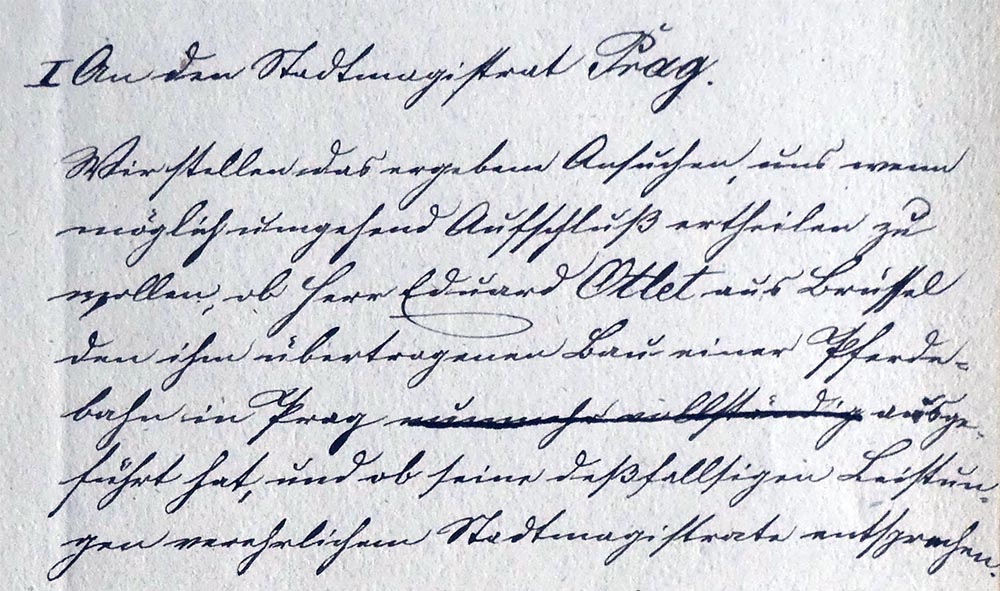 I An den Stadtmagistrat Prag.
Wir stellen das ergebene Ansuchen, uns wenn
möglich umgehend Aufschluß ertheilen zu
wollen, ob Herr Eduard Otlet aus Brüssel
den ihm übertragenen Bau einer Pferde-
bahn in Prag nunmehr vollständig ausge-
führt hat, und ob seine deßfallsigen Leistun-
gen verehrlichem Stadtmagistrate entsprechen.